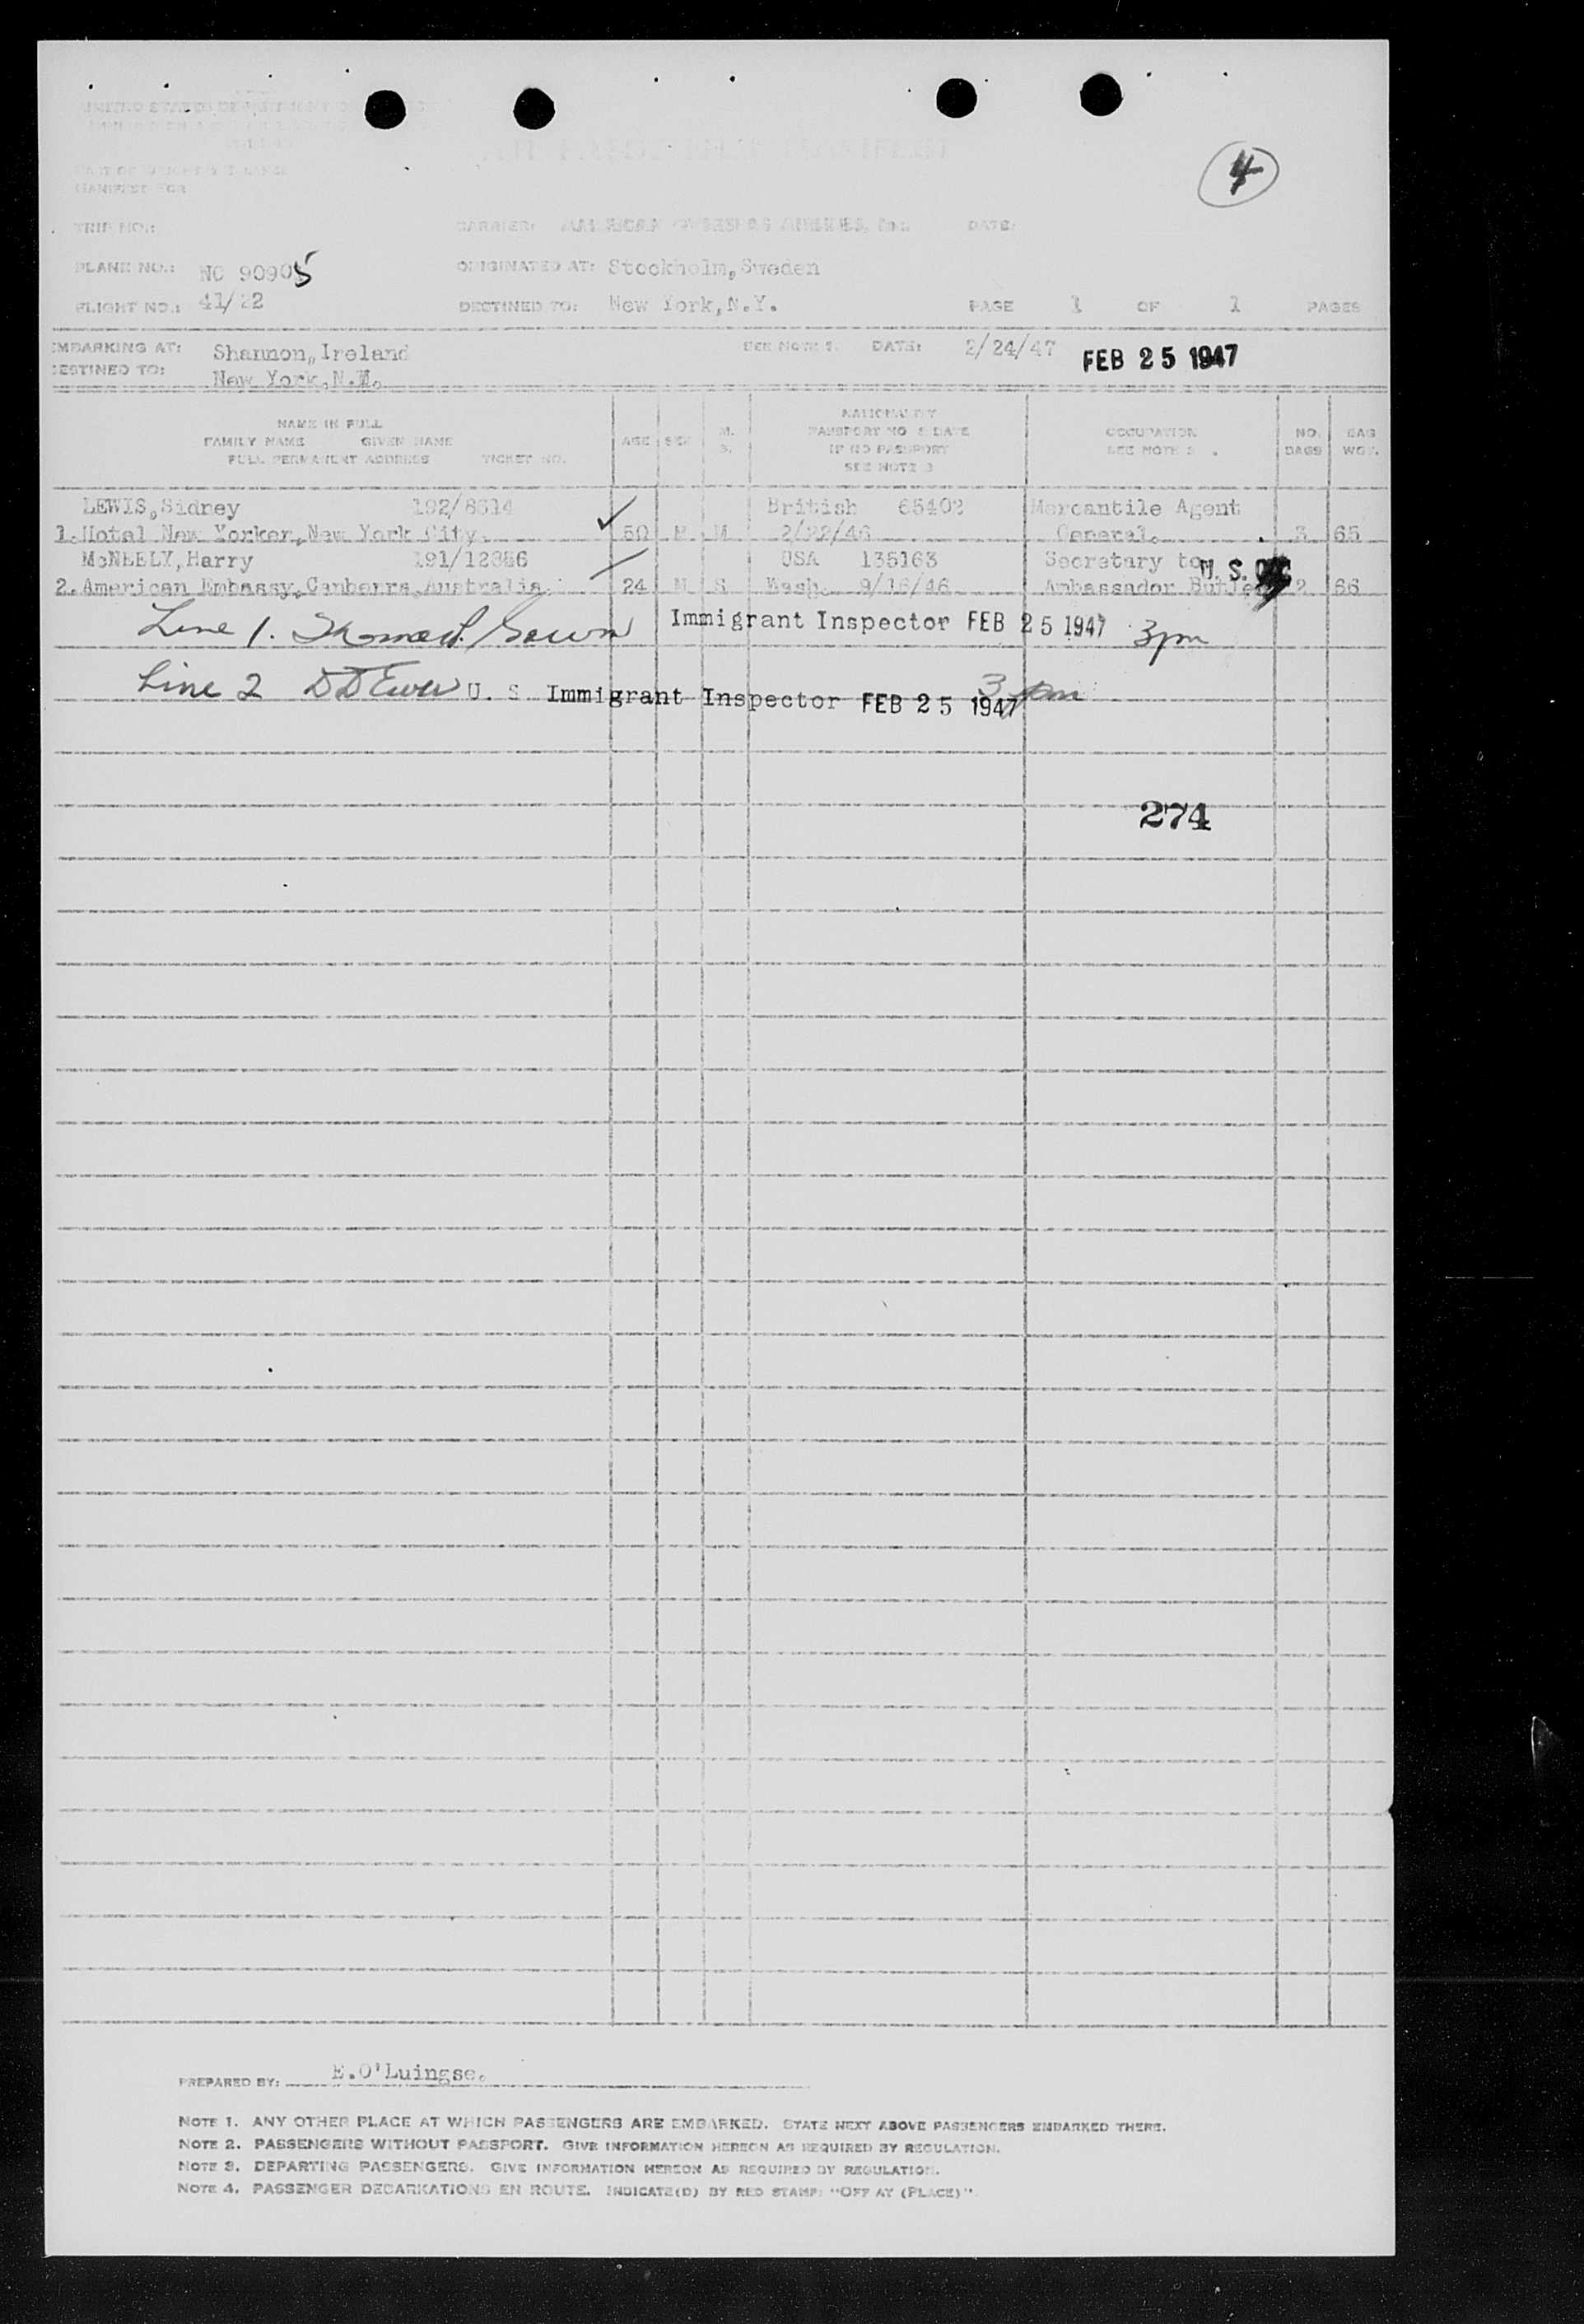 UNITED STATES DEPARTMENT OF JUSTICE
AIR PASSENGER MANIFEST
4
MANIFEST FOR
TRIP NO.: CARRIER: AMERICAN OVERSEAS AIRLINES, Inc. DATE:
PLANE NO.: NC 90905 ORIGINATED AT: Stockholm,Sweden
FLIGHT NO.: 41/22 DESTINED TO: New York,N.Y. PAGE 1 OF 1 PAGES
EMBARKING AT: Shannon,Ireland SEE NOTE 1. DATE: 2/24/47 FEB 25 1947
DESTINED TO: New York,N.Y.
NAME IN FULL
FAMILY NAME GIVEN NAME
FULL PERMANENT ADDRESS TICKET NO.
AGE SEX M. S.
NATIONALITY
PASSPORT NO & DATE
IF NO PASSPORT
SEE NOTE 2
OCCUPATION
SEE NOTE 3
NO. BAGS
BAG WGT.
LEWIS,Sidney 192/8614 British 65402 Mercantile Agent
1.Hotel New Yorker,New York City. 50 M M 2/22/46 General. 3 65
McNEELY,Harry 191/12386 USA 135163 Secretary to U. S.
2.American Embassy,Canberra,Australia. 24 M S Wash. 9/16/46 Ambassador Butler 2 66
Line 1. Immigrant Inspector FEB 25 1947 3pm
Line 2 U. S. Immigrant Inspector FEB 25 1947 3 pm
274
PREPARED BY: E.O'Luingse.
NOTE 1. ANY OTHER PLACE AT WHICH PASSENGERS ARE EMBARKED. STATE NEXT ABOVE PASSENGERS EMBARKED THERE.
NOTE 2. PASSENGERS WITHOUT PASSPORT. GIVE INFORMATION HEREON AS REQUIRED BY REGULATION.
NOTE 3. DEPARTING PASSENGERS. GIVE INFORMATION HEREON AS REQUIRED BY REGULATION.
NOTE 4. PASSENGER DEBARKATIONS EN ROUTE. INDICATE(D) BY RED STAMP: "OFF AT (PLACE)".